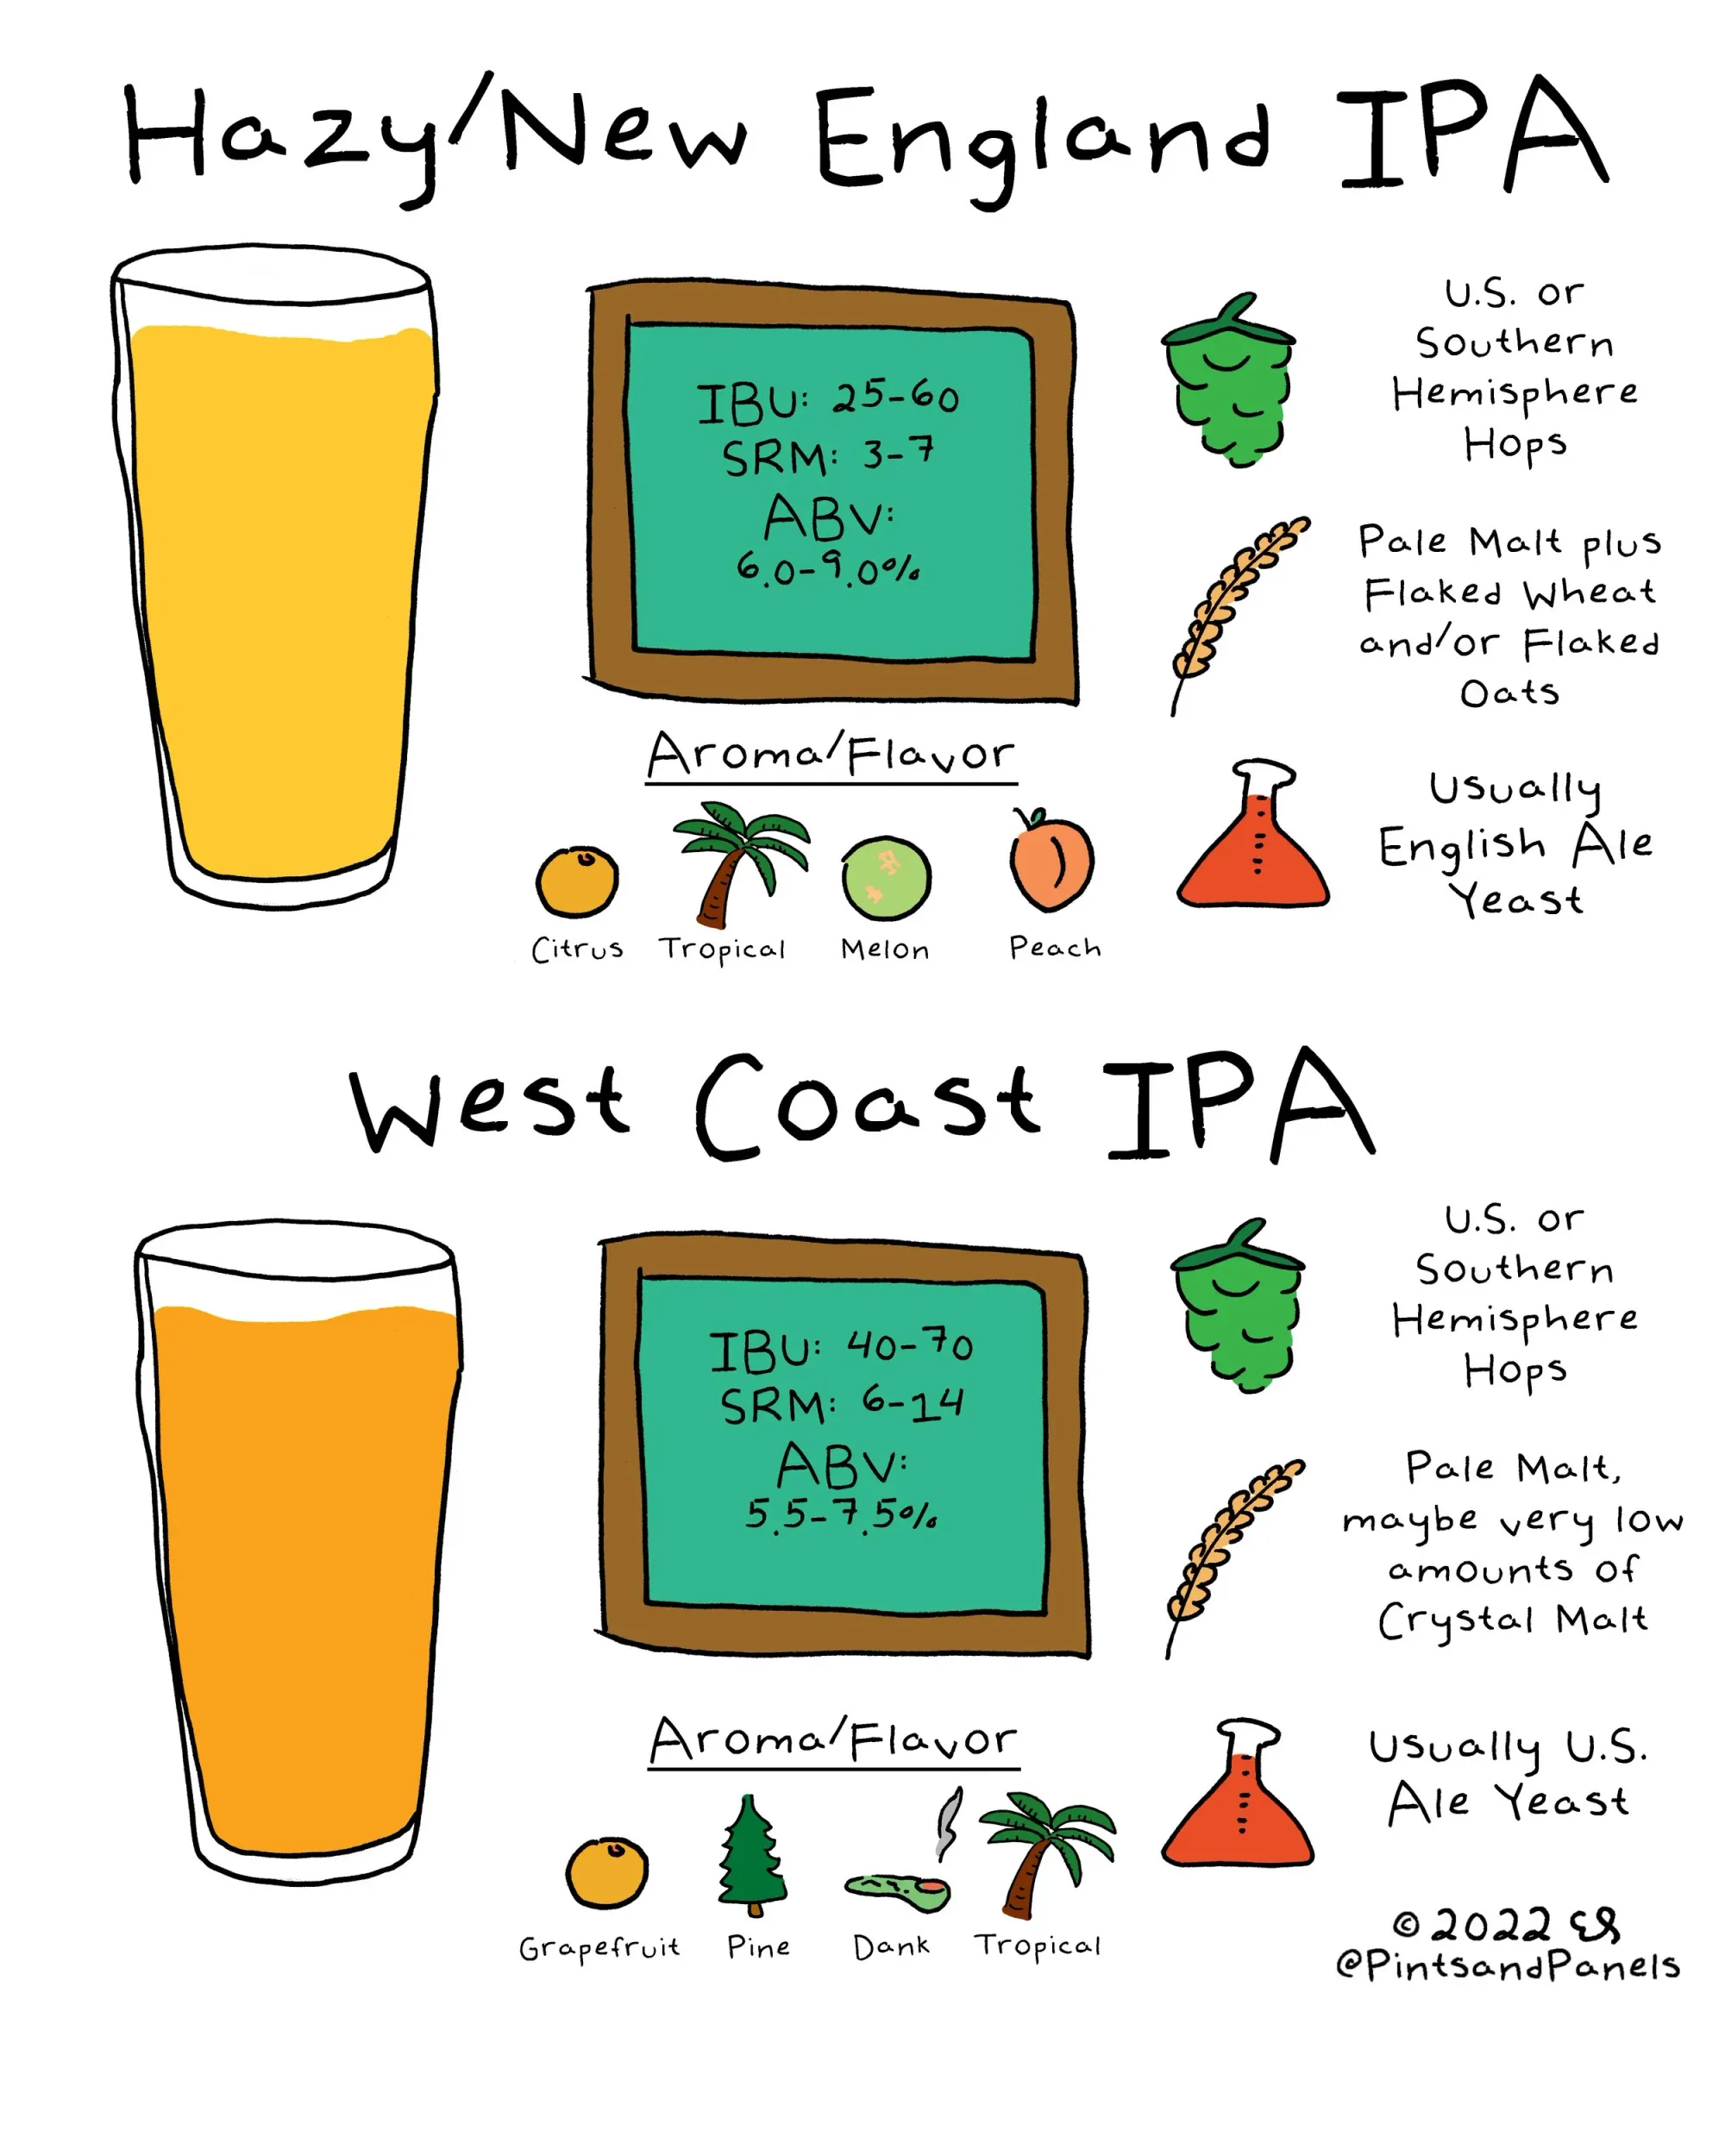 Hazy/New England IPA
IBU: 25-60
SRM: 3-7
ABV:
6.0-9.0%
U.S. or
Southern
Hemisphere
Hops
Pale Malt plus
Flaked Wheat
and/or Flaked
Oats
Usually
English Ale
Yeast
Aroma/Flavor
Citrus
Tropical
Melon
Peach
West Coast IPA
IBU: 40-70
SRM: 6-14
ABV:
5.5-7.5%
U.S. or
Southern
Hemisphere
Hops
Pale Malt,
maybe very low
amounts of
Crystal Malt
Usually U.S.
Ale Yeast
Aroma/Flavor
Grapefruit
Pine
Dank
Tropical
© 2022
@PintsandPanels